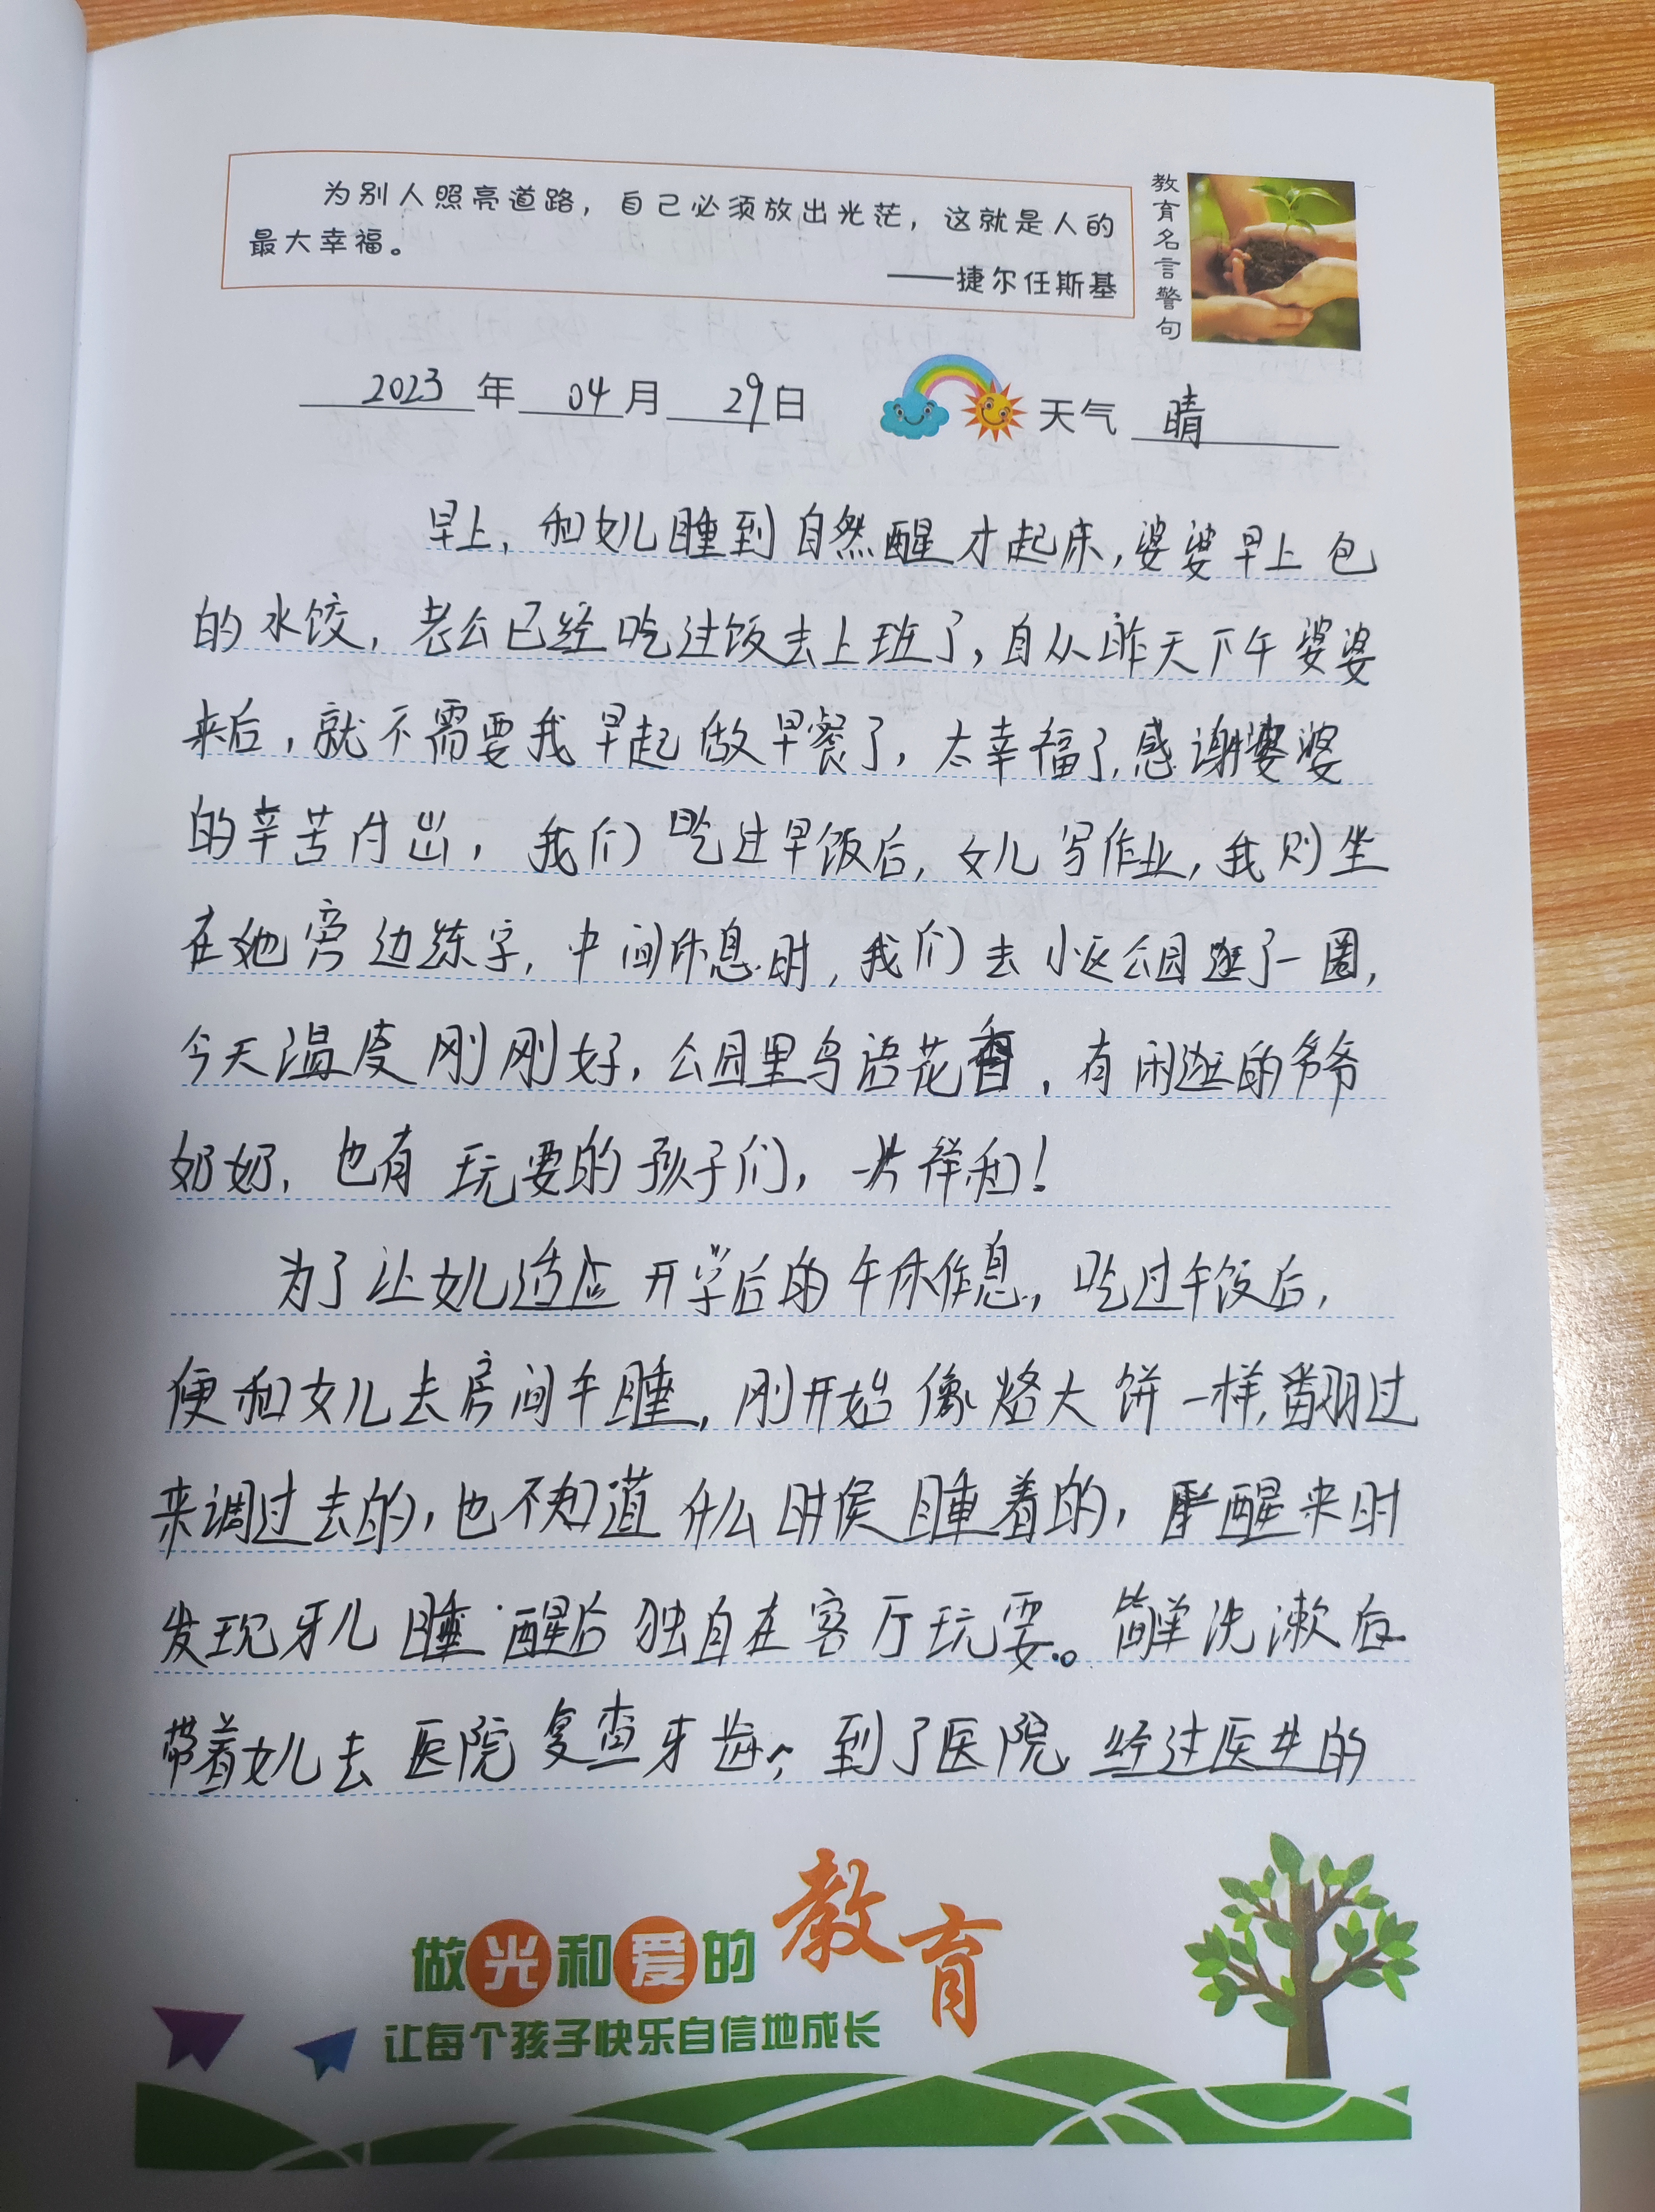 为别人照亮道路，自己必须放出光茫，这就是人的
最大幸福。
——捷尔任斯基
教育名言警句
2023年04月29日
天气 晴
早上，和女儿睡到自然醒才起床，婆婆早上包
的水饺，老公已经吃过饭去上班了，自从昨天下午婆婆
来后，就不需要我早起做早餐了，太幸福了，感谢婆婆
的辛苦付出，我们吃过早饭后，女儿写作业，我则坐
在她旁边练字，中间休息时，我们去小区公园逛了一圈，
今天温度刚刚好，公园里鸟语花香，有闲逛的爷爷
奶奶，也有玩耍的孩子们，一片祥和！
为了让女儿适应开学后的午休作息，吃过午饭后，
便和女儿去房间午睡，刚开始像烙大饼一样，翻过
来调过去的，也不知道什么时侯睡着的，醒来时
发现牙儿睡醒后独自在客厅玩耍。简单洗漱后
带着女儿去医院复查牙齿，到了医院，经过医生的
做光和爱的教育
让每个孩子快乐自信地成长